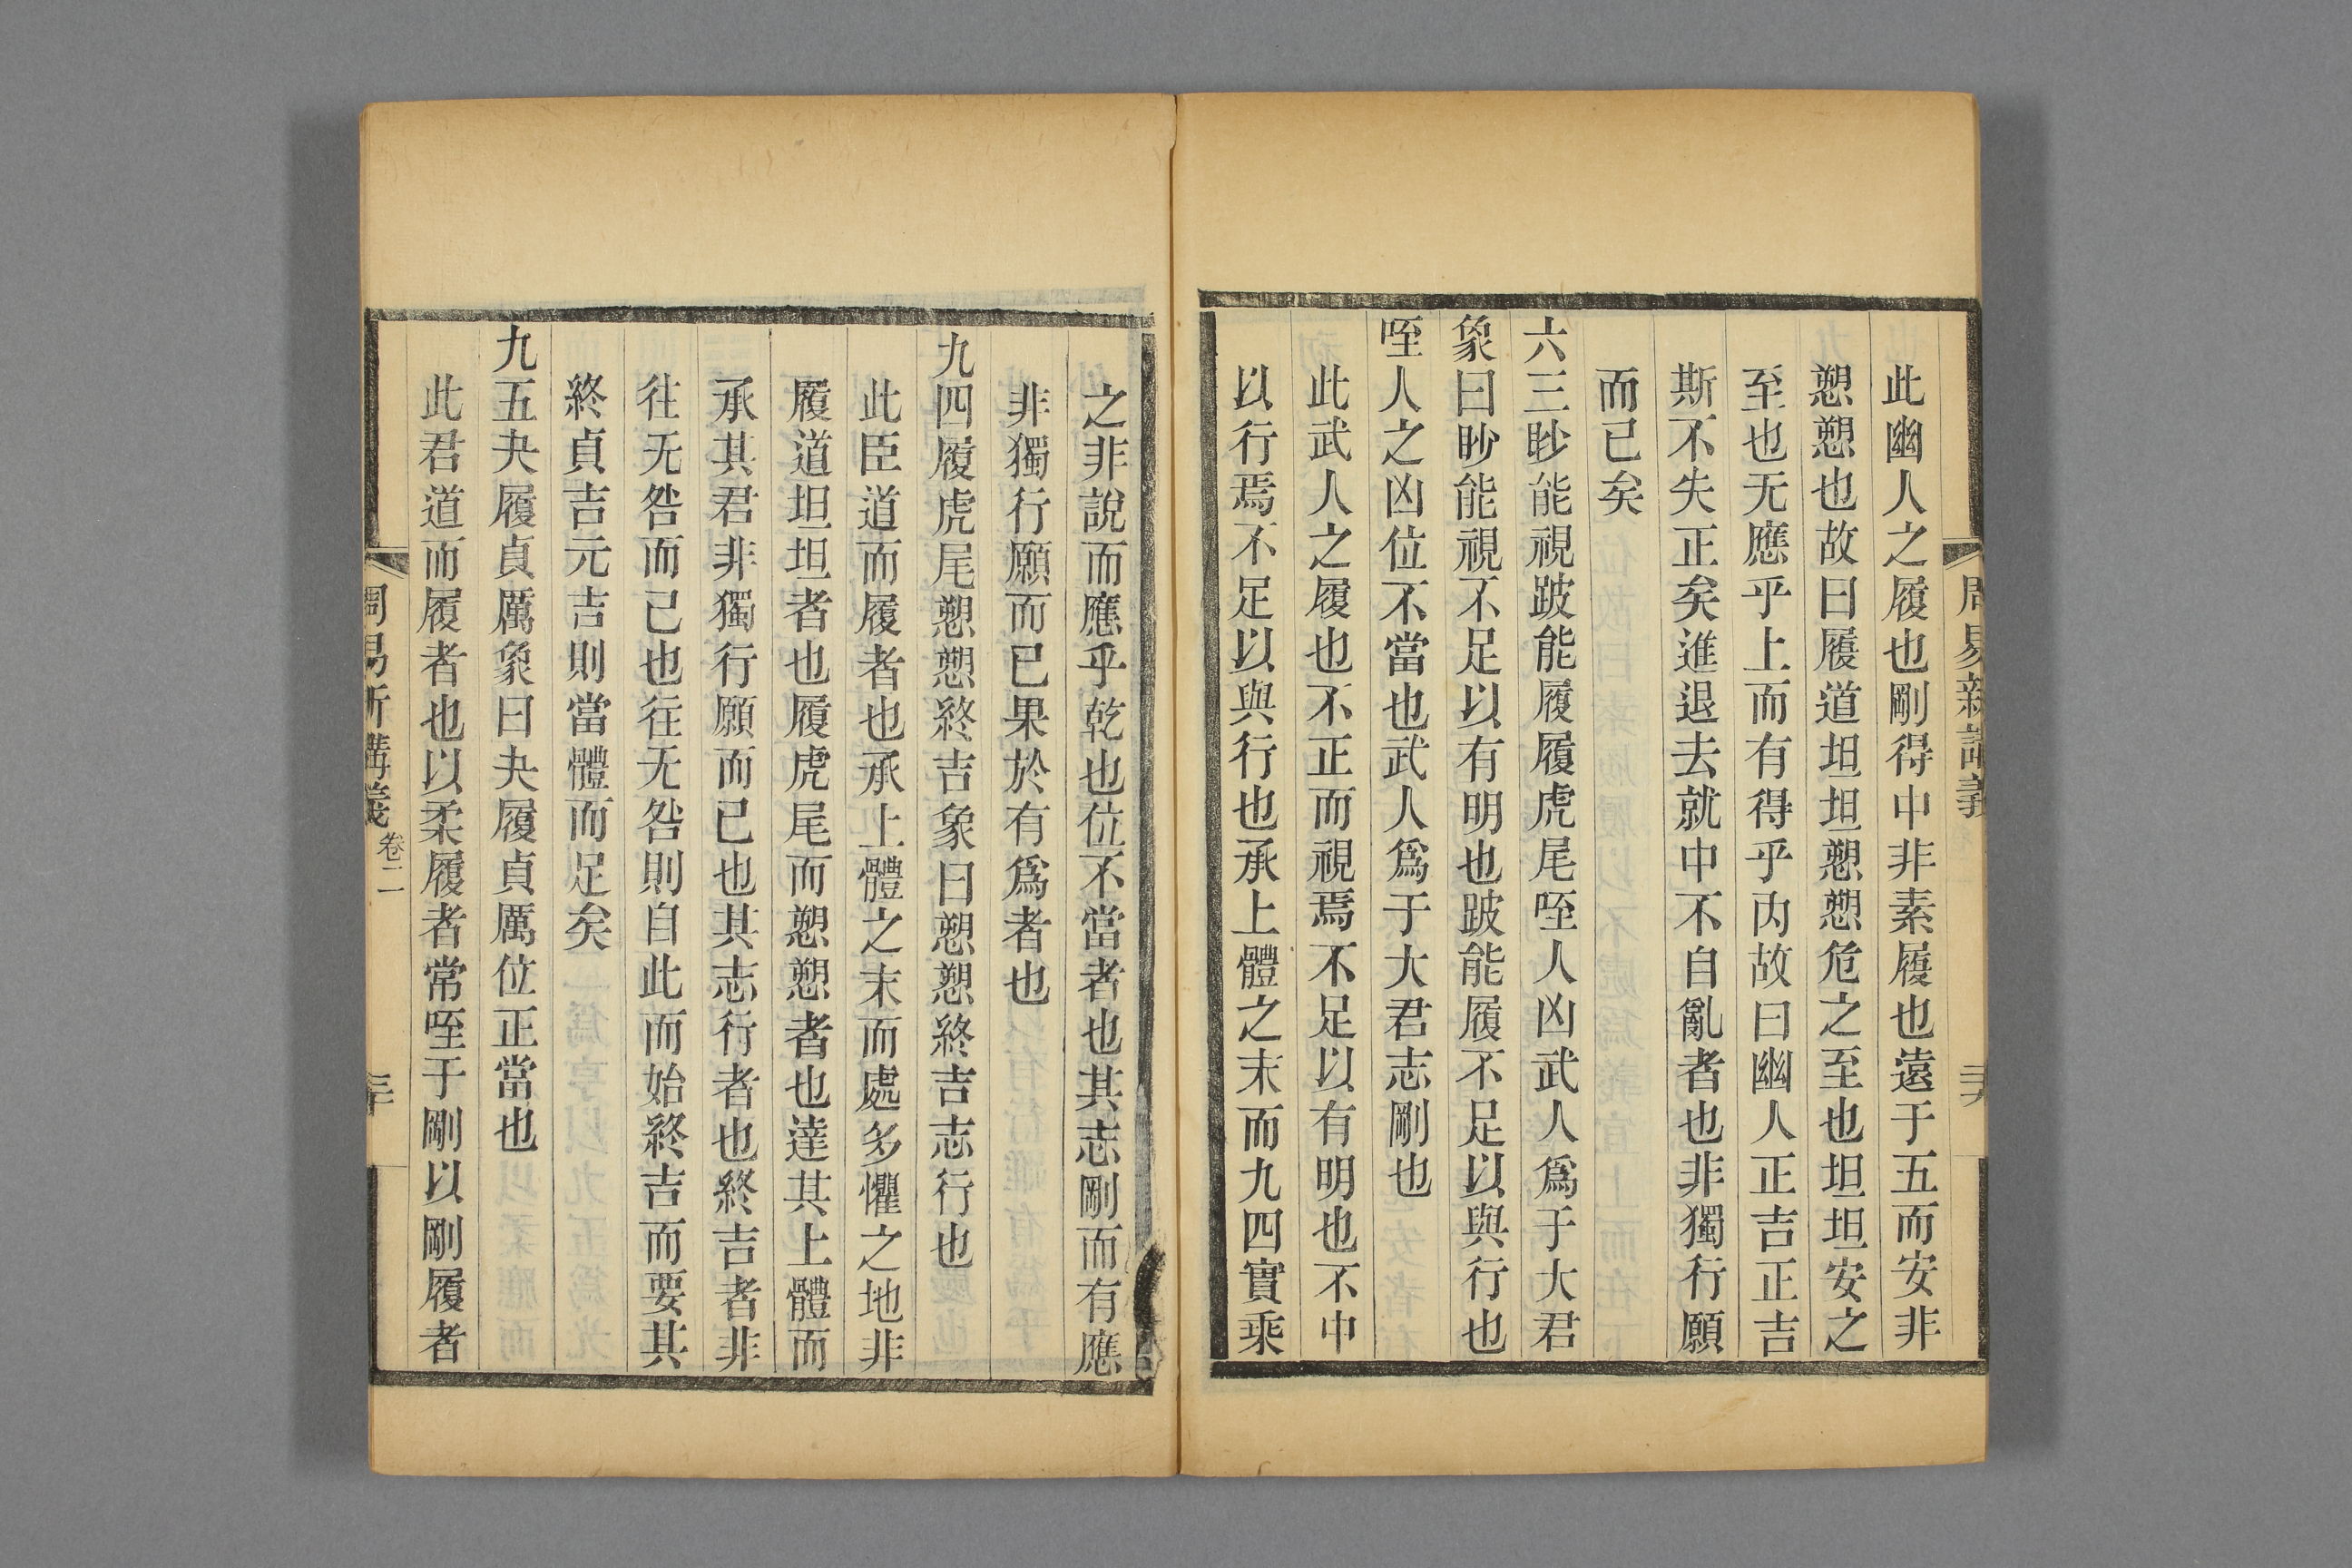 周易新講義
二十九
此幽人之履也剛得中非素履也遠于五而安非
愬愬也故曰履道坦坦愬愬危之至也坦坦安之
至也无應乎上而有得乎內故曰幽人正吉正吉
斯不失正矣進退去就中不自亂者也非獨行願
而已矣
六三眇能視跛能履履虎尾咥人凶武人爲于大君
象曰眇能視不足以有明也跛能履不足以與行也
咥人之凶位不當也武人爲于大君志剛也
此武人之履也不正而視焉不足以有明也不中
以行焉不足以與行也承上體之末而九四實乘
之非說而應乎乾也位不當者也其志剛而有應
非獨行願而已果於有爲者也
九四履虎尾愬愬終吉象曰愬愬終吉志行也
此臣道而履者也承上體之末而處多懼之地非
履道坦坦者也履虎尾而愬愬者也達其上體而
承其君非獨行願而已也其志行者也終吉者非
往无咎而已也往无咎則自此而始終吉而要其
終貞吉元吉則當體而足矣
九五夬履貞厲象曰夬履貞厲位正當也
此君道而履者也以柔履者常咥于剛以剛履者
周易新講義
卷二
三十